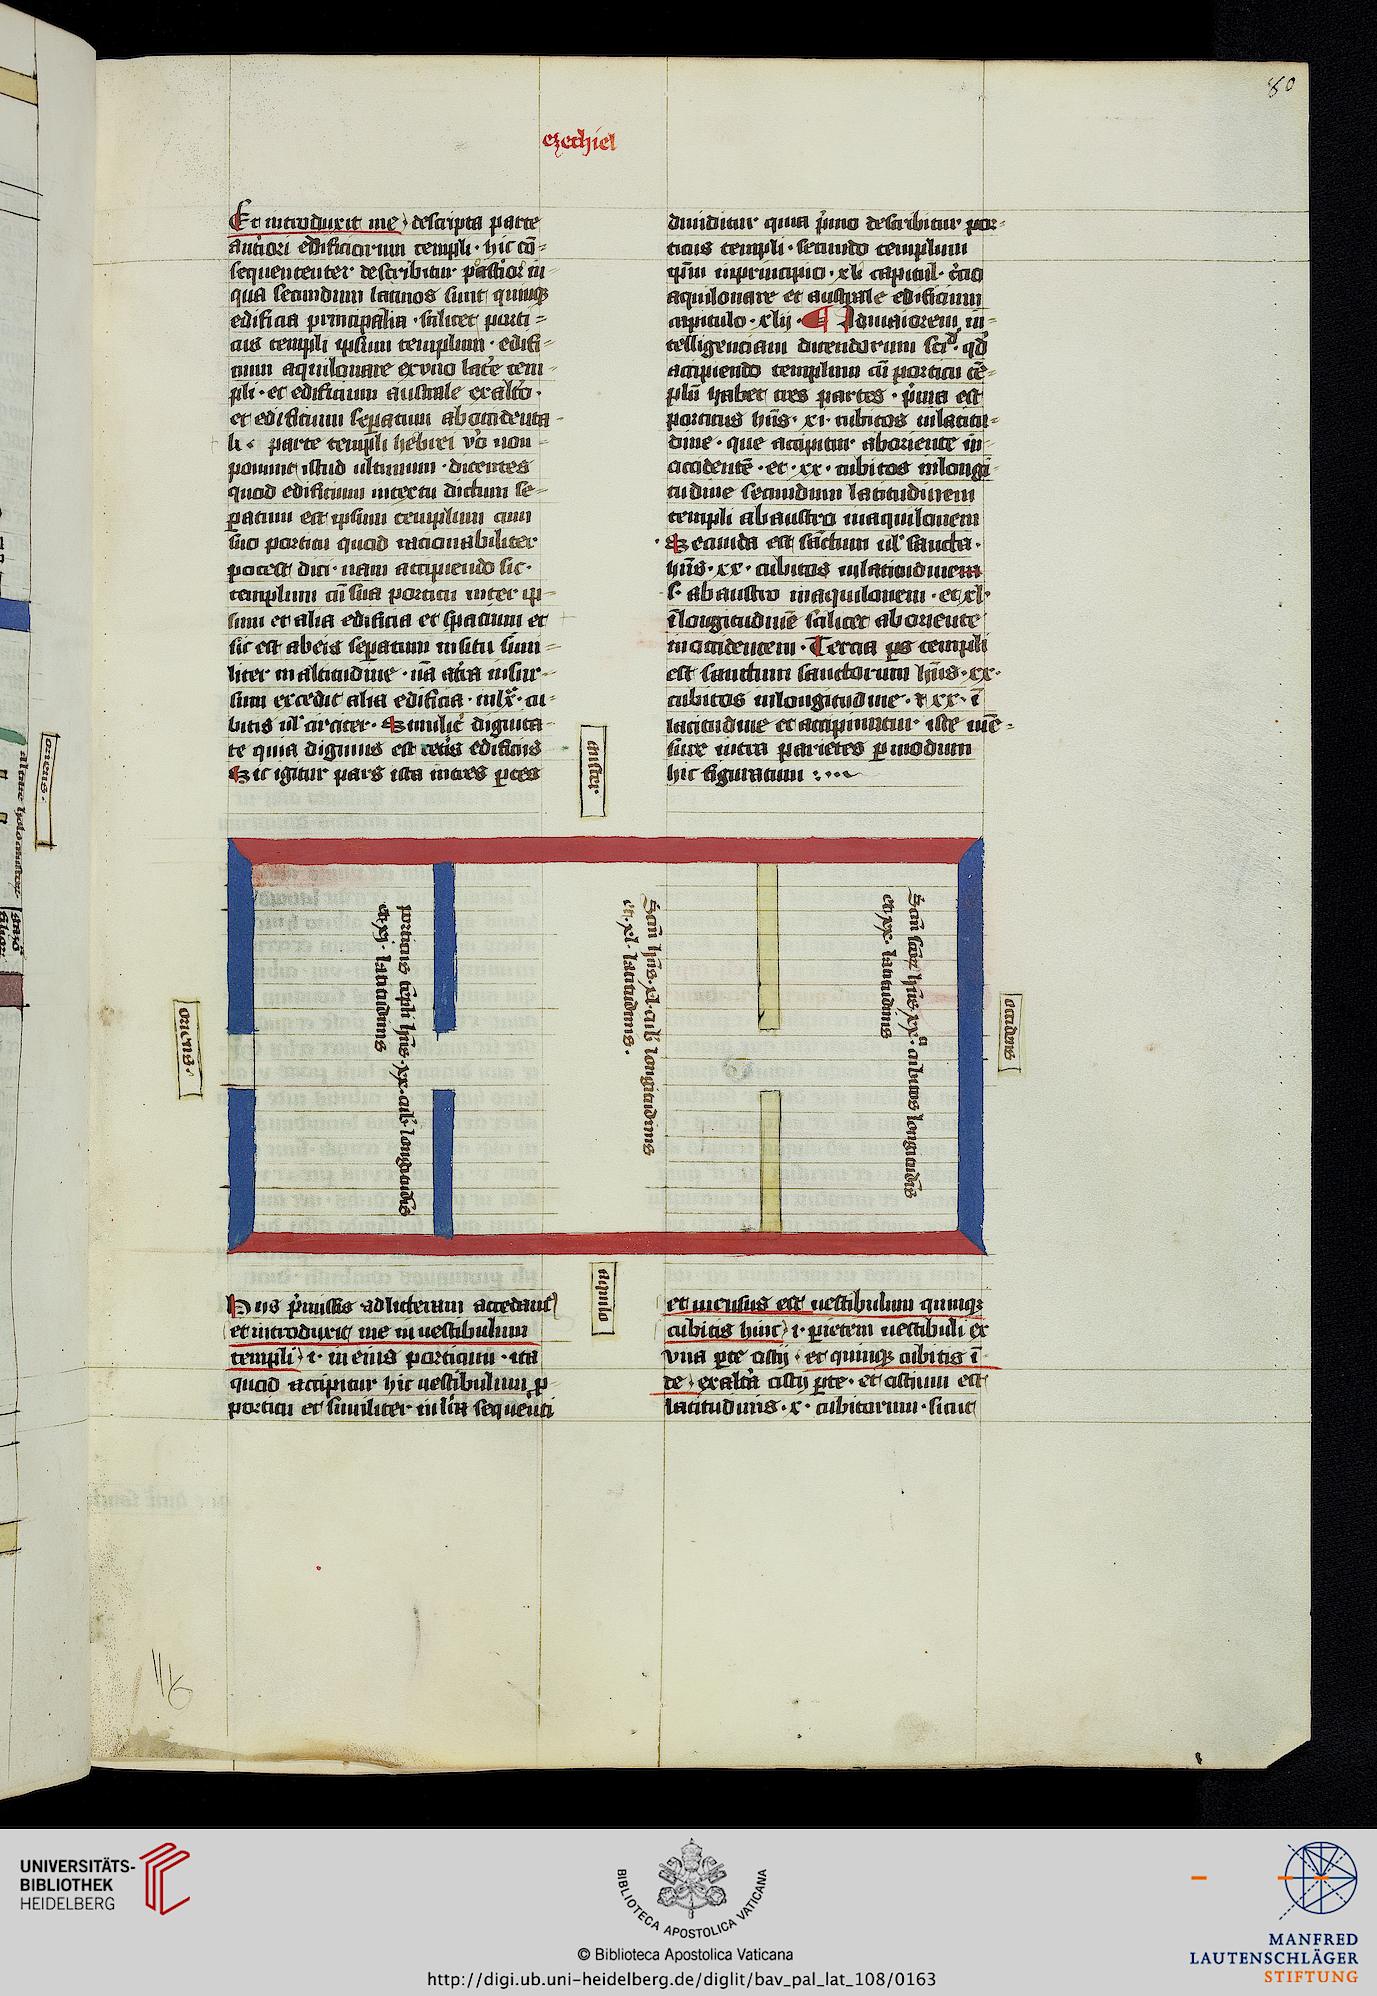 80
ezechiel
Et introduxit me descripta parte
anteriori edificiorum templi · hic cō=
sequenter describitur
qua secundum latinos sunt quinque
edificia principalia · scilicet porti=
cus templi ipsum templum · edifi=
cium aquilonare ex uno late tem=
pli · et edificium australe ex alto ·
et edificium sepatum ab occidenta=
li · parte templi hebrei vo non=
ponunt istud ultimum · dicentes
quod edificium in textu dictum se=
patum est ipsum templum cum
suo porticu quod racionabiliter
potest dici · nam accipiendo sic ·
templum cū sua porticu inter ip
sum et alia edificia et spacium et
sic est ab eis sepatum in situ simi=
liter in altitudine · nā
sum excedit alia edificia · in lx · cu=
bitis ul circiter · Similit dignita=
te quia dignius est edificiis
Sic igitur pars ista in tres ptes
diuiditur quia pimo describitur por=
ticus templi · secundo templum
in principio · xli capitul · tcio
aquilonare et australe edificium
capitulo · xlij · ¶ Ad maiorem in=
telligenciam dicendorum scid · qd
accipiendo templum cū porticu tē=
plū habet tres partes · pima est
porticus hns · xi · cubitos in latitu=
dine · que accipitur ab oriente in=
occidentē · et · xx · cubitos in longi=
tudine secundum latitudinem
templi ab austro in aquilonem
Secunda est sanctum ul sancta ·
hns · xx · cubitos in latitudinem
s · ab austro in aquilonem · et xl ·
ī longitudinē scilicet ab oriente
in occidentem · Tercia ps templi
est sanctum sanctorum hns · xx ·
cubitos in longitudine · et xx · ī
latitudine et accipiuntur iste mē=
sure intra parietes p modum
hic figuratum :
auster ·
oriens ·
porticus tēpli hns · xx · cub longitudis
et xj · latitudinis
Sctm hns · xl · cub longitudinis
et · xl · latitudinis ·
Sctm sctoꝝ hns · xx · cubitos longitudis
et xx · latitudinis
occidens
aquilo
Hiis pimissis ad litteram accedamus
et introduxit me in uestibulum
templi i · in eius porticum · ita
quod accipitur hic uestibulum p
porticu et similiter in lra sequenti
et mensus est uestibulum quinque
cubitis hinc i · pietem uestibuli ex
vna pte ostij · et quinque cubitis ī
de ex alta ostij pte · et ostium est
latitudinis · x · cubitorum · sicut
oriens ·
UNIVERSITÄTS-
BIBLIOTHEK
HEIDELBERG
BIBLIOTECA APOSTOLICA VATICANA
© Biblioteca Apostolica Vaticana
http://digi.ub.uni-heidelberg.de/diglit/bav_pal_lat_108/0163
MANFRED
LAUTENSCHLÄGER
STIFTUNG